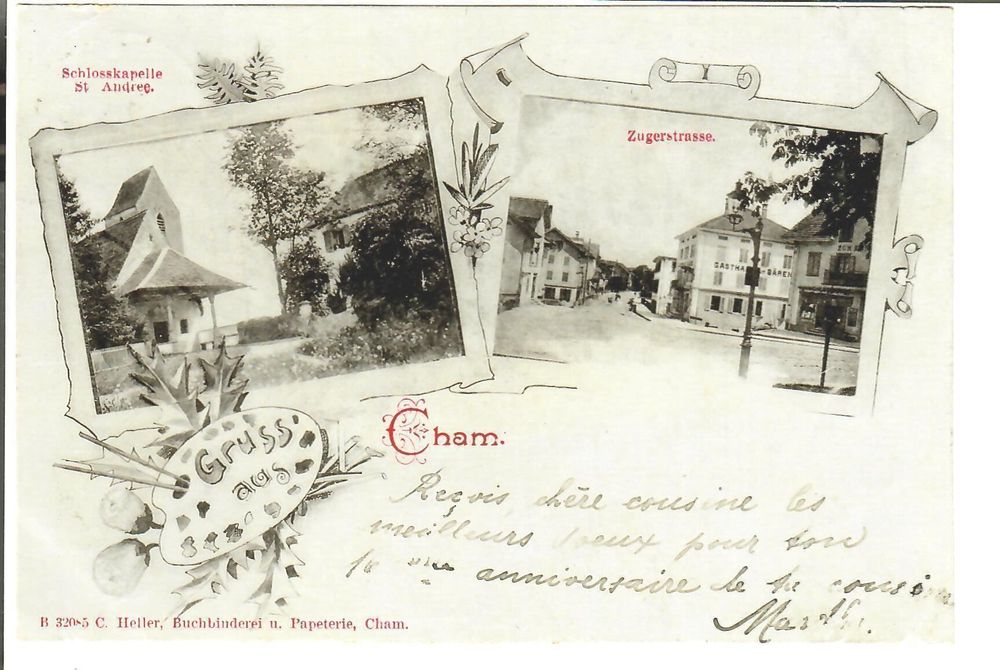 Schlosskapelle
St Andree.
Zugerstrasse.
GASTHA BÄREN
ZUM
Gruss
aus
Cham.
Reçois, chère cousine les
meilleurs voeux pour ton
anniversaire de ta cousine
B 32085 C. Heller, Buchbinderei u. Papeterie, Cham.